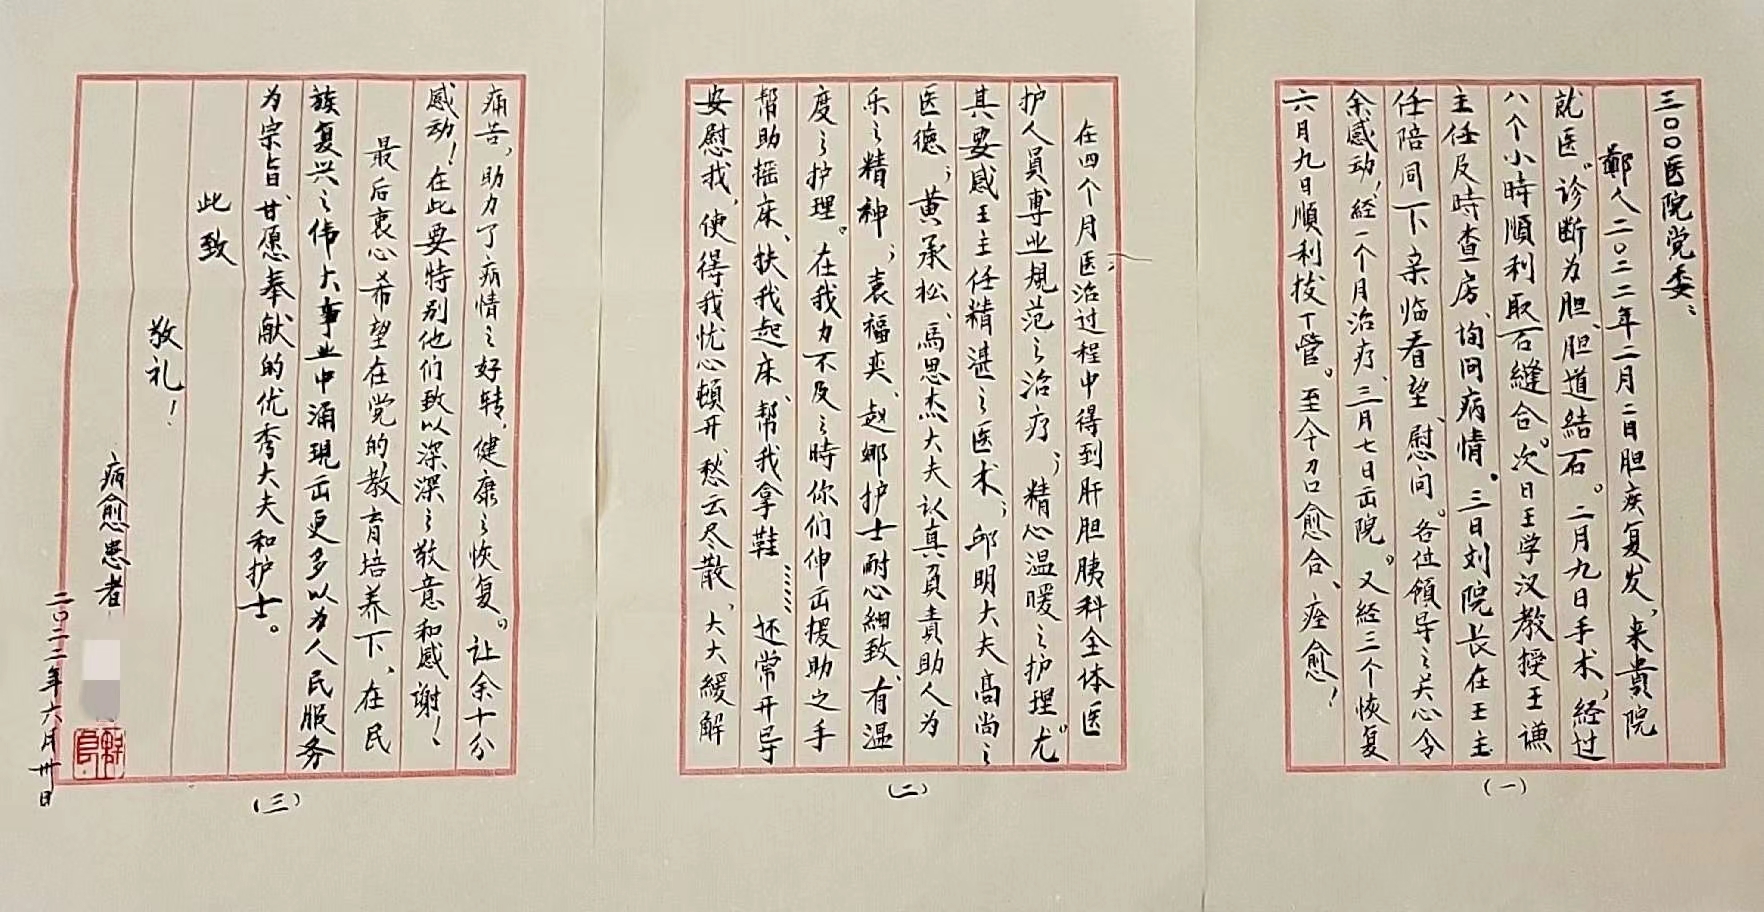 三〇〇医院党委：
鄙人二〇二二年二月二日胆疾复发，来贵院
就医。诊断为胆、胆道结石。二月九日手术，经过
八个小時順利取石縫合。次日王学汉教授王谦
主任及時查房、询问病情。三日刘院长在王主
任陪同下亲临看望、慰问。各位領导之关心令
余感动！经一个月治疗、三月七日出院。又经三个恢复
六月九日順利拔T管。至今刀口愈合、痊愈！
（一）
在四个月医治过程中得到肝胆胰科全体医
护人員專业規范之治疗；精心温暖之护理。尤
其要感王主任精湛之医术；邱明大夫高尚之
医德；黄承松、馬思杰大夫认真負責助人为
乐之精神；袁福英、赵娜护士耐心細致、有温
度之护理。在我力不及之時你们伸出援助之手
帮助摇床、扶我起床、帮我拿鞋……还常开导
安慰我，使得我忧心頓开、愁云尽散、大大緩解
（二）
痛苦，助力了病情之好转，健康之恢复。让余十分
感动！在此要特别他们致以深深之敬意和感谢！
最后衷心希望在党的教育培养下、在民
族复兴之伟大事业中涌現出更多以为人民服务
为宗旨、甘愿奉献的优秀大夫和护士。
此致
敬礼！
病愈患者
二〇二二年六月卅日
（三）